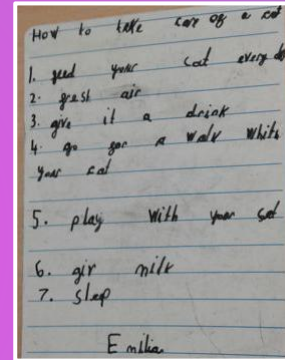 How to take care of a cat
1. feed your cat every da
2. fresh air
3. give it a drink
4. go for a walk whith
your cat
5. play with your cat
6. giv milk
7. sleep
Emilia